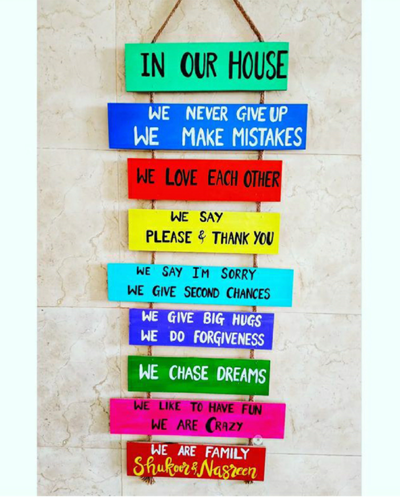 IN OUR HOUSE
WE NEVER GIVE UP
WE MAKE MISTAKES
WE LOVE EACH OTHER
WE SAY
PLEASE & THANK YOU
WE SAY I'M SORRY
WE GIVE SECOND CHANCES
WE GIVE BIG HUGS
WE DO FORGIVENESS
WE CHASE DREAMS
WE LIKE TO HAVE FUN
WE ARE CRAZY
WE ARE FAMILY
Shukoor & Nasreen